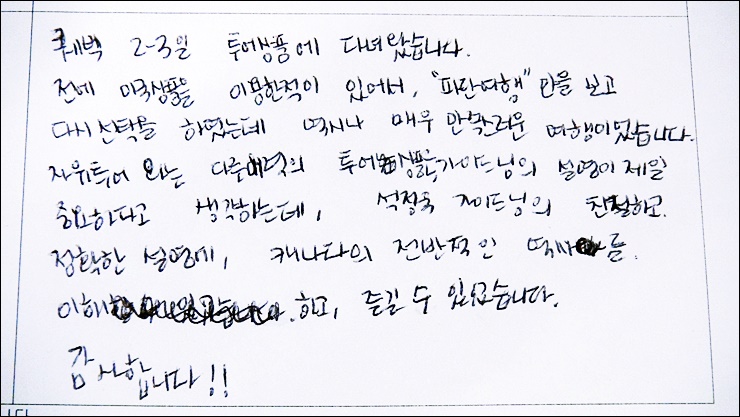 퀘벡 2-3일 투어상품에 다녀왔습니다.
전에 미국상품을 이용한적이 있어서, "파란여행" 만을 보고
다시 선택을 하였는데 역시나 매우 만족스러운 여행이었습니다.
자유투어 와는 다른매력의 투어상품은 가이드님의 설명이 제일
중요하다고 생각하는데, 석정욱 가이드님의 친절하고.
정확한 설명에, 캐나다의 전반적인 역사를.
이해 하고, 즐길 수 있었습니다.
감사합니다!!